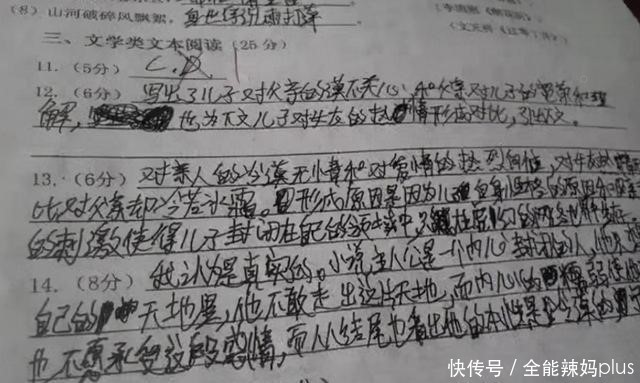 (8) 山河破碎风飘絮，身世浮沉雨打萍。
三、文学类文本阅读 (25分)
11. (5分) C.A
12. (6分) 写出了儿子对父亲的漠不关心，和父亲对儿子的宽容和理
解，也为下文儿子对女友的热情形成对比，引下文。
13. (6分) 对亲人的冷漠无情和对爱情的热烈向往，对女友
比对父亲却冷若冰霜。形成原因是因为儿子自身性格的原因和
的刺激使得儿子封闭在自己的
14. (8分) 我认为是真实的。小说主人公是一个内心封闭的人，他
自己的天地里，他不敢走出这片天地，而内心的懦弱使他
也不愿承受这段爱情，而从结尾也看出他的本性是
快传号 / 全能辣妈plus